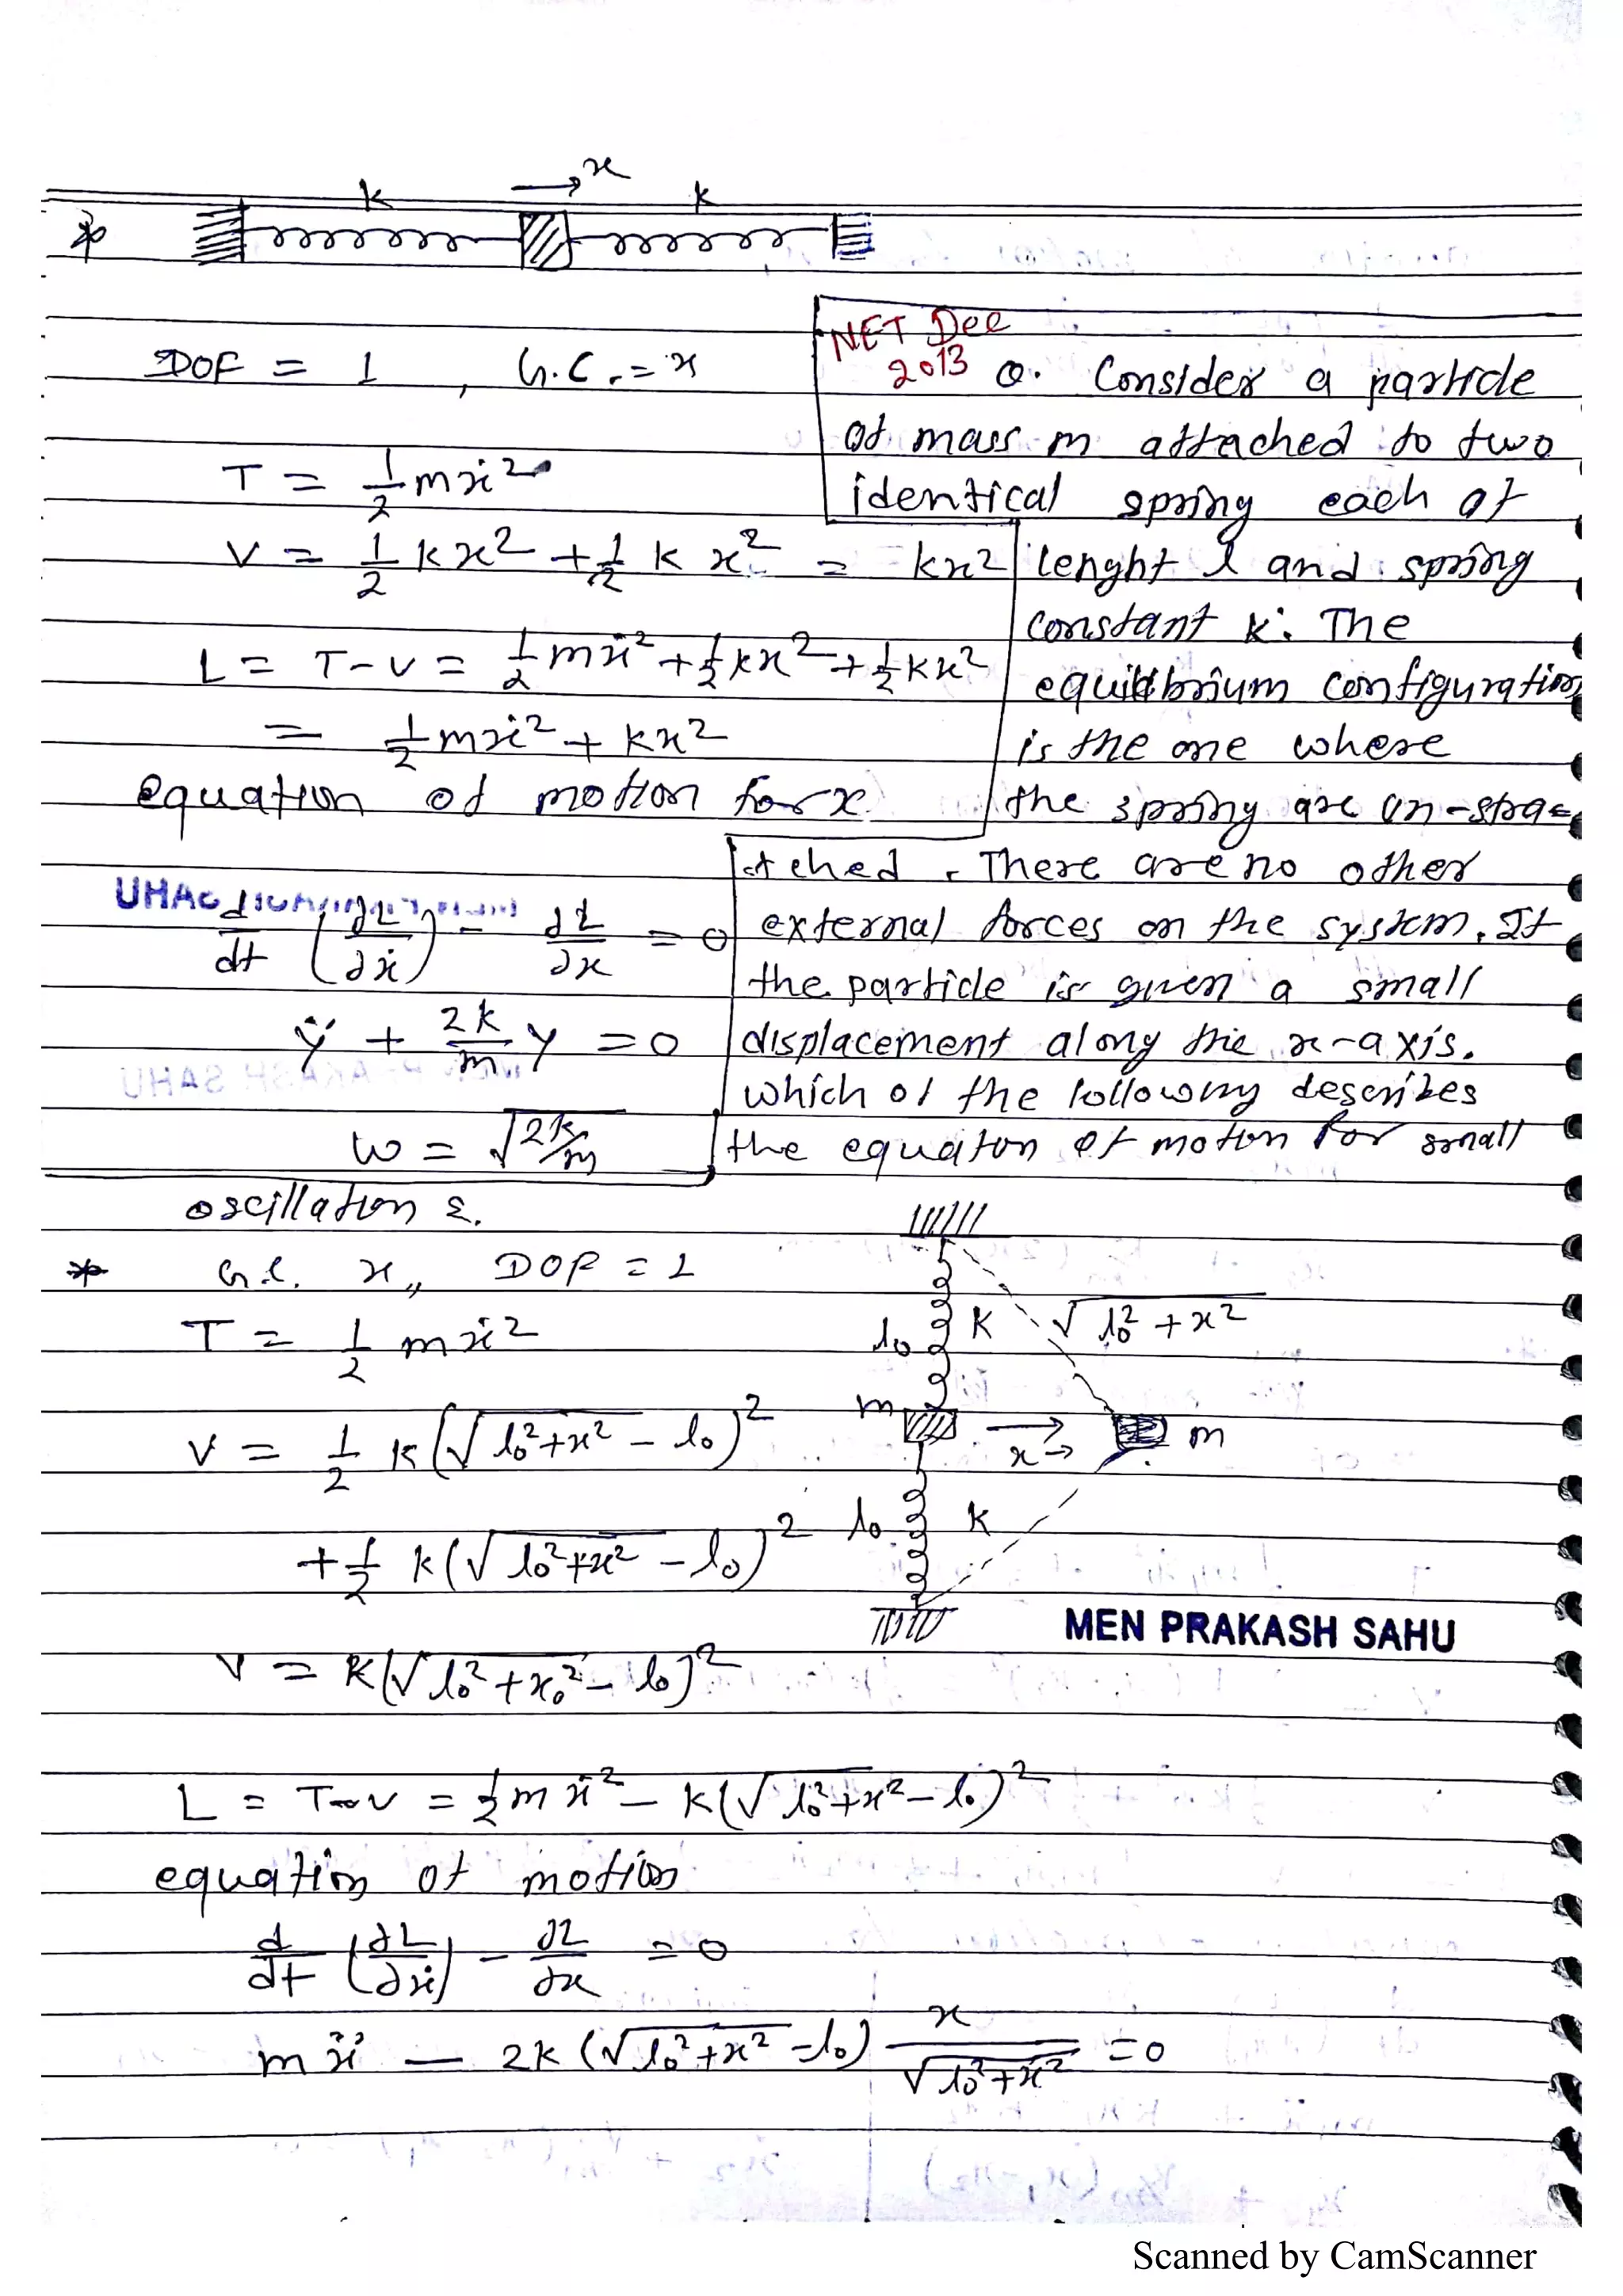 x
k k
*
DOF = 1 , G.C. = x
T = 1/2 mẋ²
V = 1/2 kx² + 1/2 k x² = kx²
L = T-V = 1/2 mẋ² + 1/2 kx² + 1/2 kx²
= 1/2 mẋ² + kx²
equation of motion for x
d/dt (∂L/∂ẋ) - ∂L/∂x = 0
ÿ + 2k/m y = 0
ω = √2k/m
NET Dec
2013 Q. Consider a particle
of mass m attached to two
identical spring each of
lenght l and spring
constant k. The
equilibrium configuration
is the one where
the spring are un-stra-
tched. There are no other
external forces on the system. If
the particle is given a small
displacement along the x-axis.
which of the following describes
the equaiton of motion for small
oscillation s.
* G.C. x,, DOF = 1
T = 1/2 mẋ²
V = 1/2 k(√l₀²+x² - l₀)²
+ 1/2 k(√l₀²+x² - l₀)²
l₀ k √l₀²+x²
m x→ m
l₀ k
MEN PRAKASH SAHU
V = k(√l₀²+x₀² - l₀)²
L = T-V = 1/2 mẋ² - k(√l₀²+x² - l₀)²
equation of motion
d/dt (∂L/∂ẋ) - ∂L/∂x = 0
mẍ - 2k(√l₀²+x² - l₀) x/√l₀²+x² = 0
Scanned by CamScanner